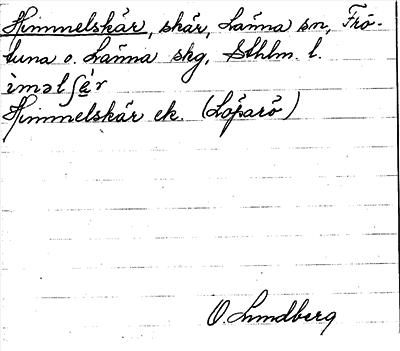 Himmelskär, skär, Länna sn, Frö-
tuna o. Länna skg, Sthlm. l.
ìməlʃä́r
Himmelskär ek. (Löparö)
O. Lundberg